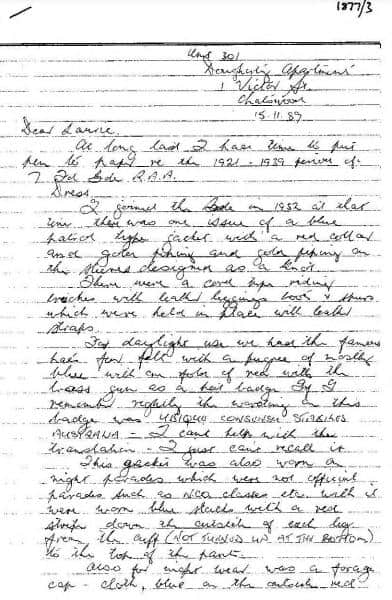 1877/3
Unit 301
Dougherty Apartment
1 Victor St.
Chatswood
15.11.89
Dear Laurie,
At long last I have time to put
pen to paper re the 1921 - 1939 period of
7 Fd Bde R.A.A.
Dress.
I joined the Bde in 1932 at that
time there was one issue of a blue
patrol type jacket with a red collar
and gold piping and gold piping on
the sleeves designed as a knot.
There were a cord type riding
breeches with leather leggings boots & spurs
which were held in place with leather
straps.
For daylight use we had the famous
hair fur felt with a pugree of mostly
blue with a fold of red with the
brass gun as a hat badge. If I
remember rightly the wording on this
badge was UBIQUE CONSENSU STABILES
AUSTRALIA - I cant help with the
translation - I just cant recall it
This jacket was also worn on
night parades which were not official
parades such as NCO classes etc. with it
were worn blue slacks with a red
stripe down the outside of each leg
from the cuff (NOT TURNED UP AT THE BOTTOM)
to the top of the pant.
Also for night wear was a forage
cap cloth, blue on the outside red